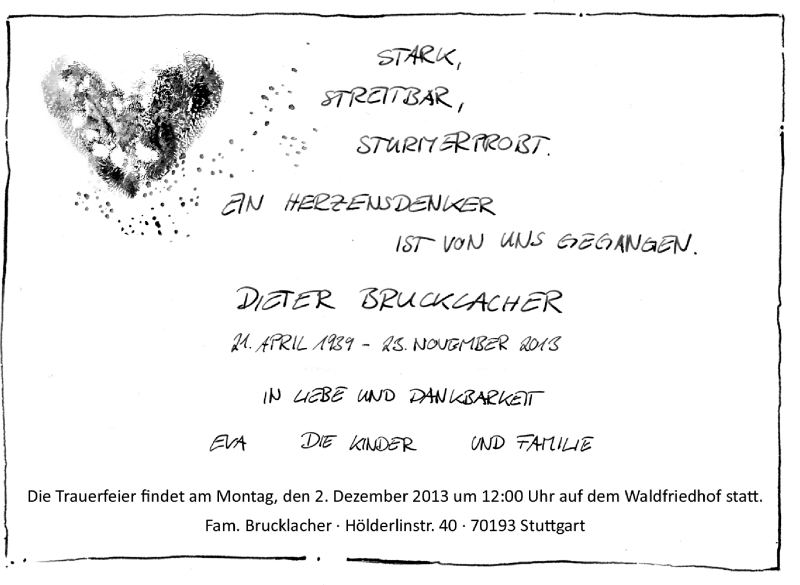 STARK,
STREITBAR,
STURMERPROBT.
EIN HERZENSDENKER
IST VON UNS GEGANGEN.
DIETER BRUCKLACHER
21. APRIL 1939 - 23. NOVEMBER 2013
IN LIEBE UND DANKBARKEIT
EVA DIE KINDER UND FAMILIE
Die Trauerfeier findet am Montag, den 2. Dezember 2013 um 12:00 Uhr auf dem Waldfriedhof statt.
Fam. Brucklacher · Hölderlinstr. 40 · 70193 Stuttgart